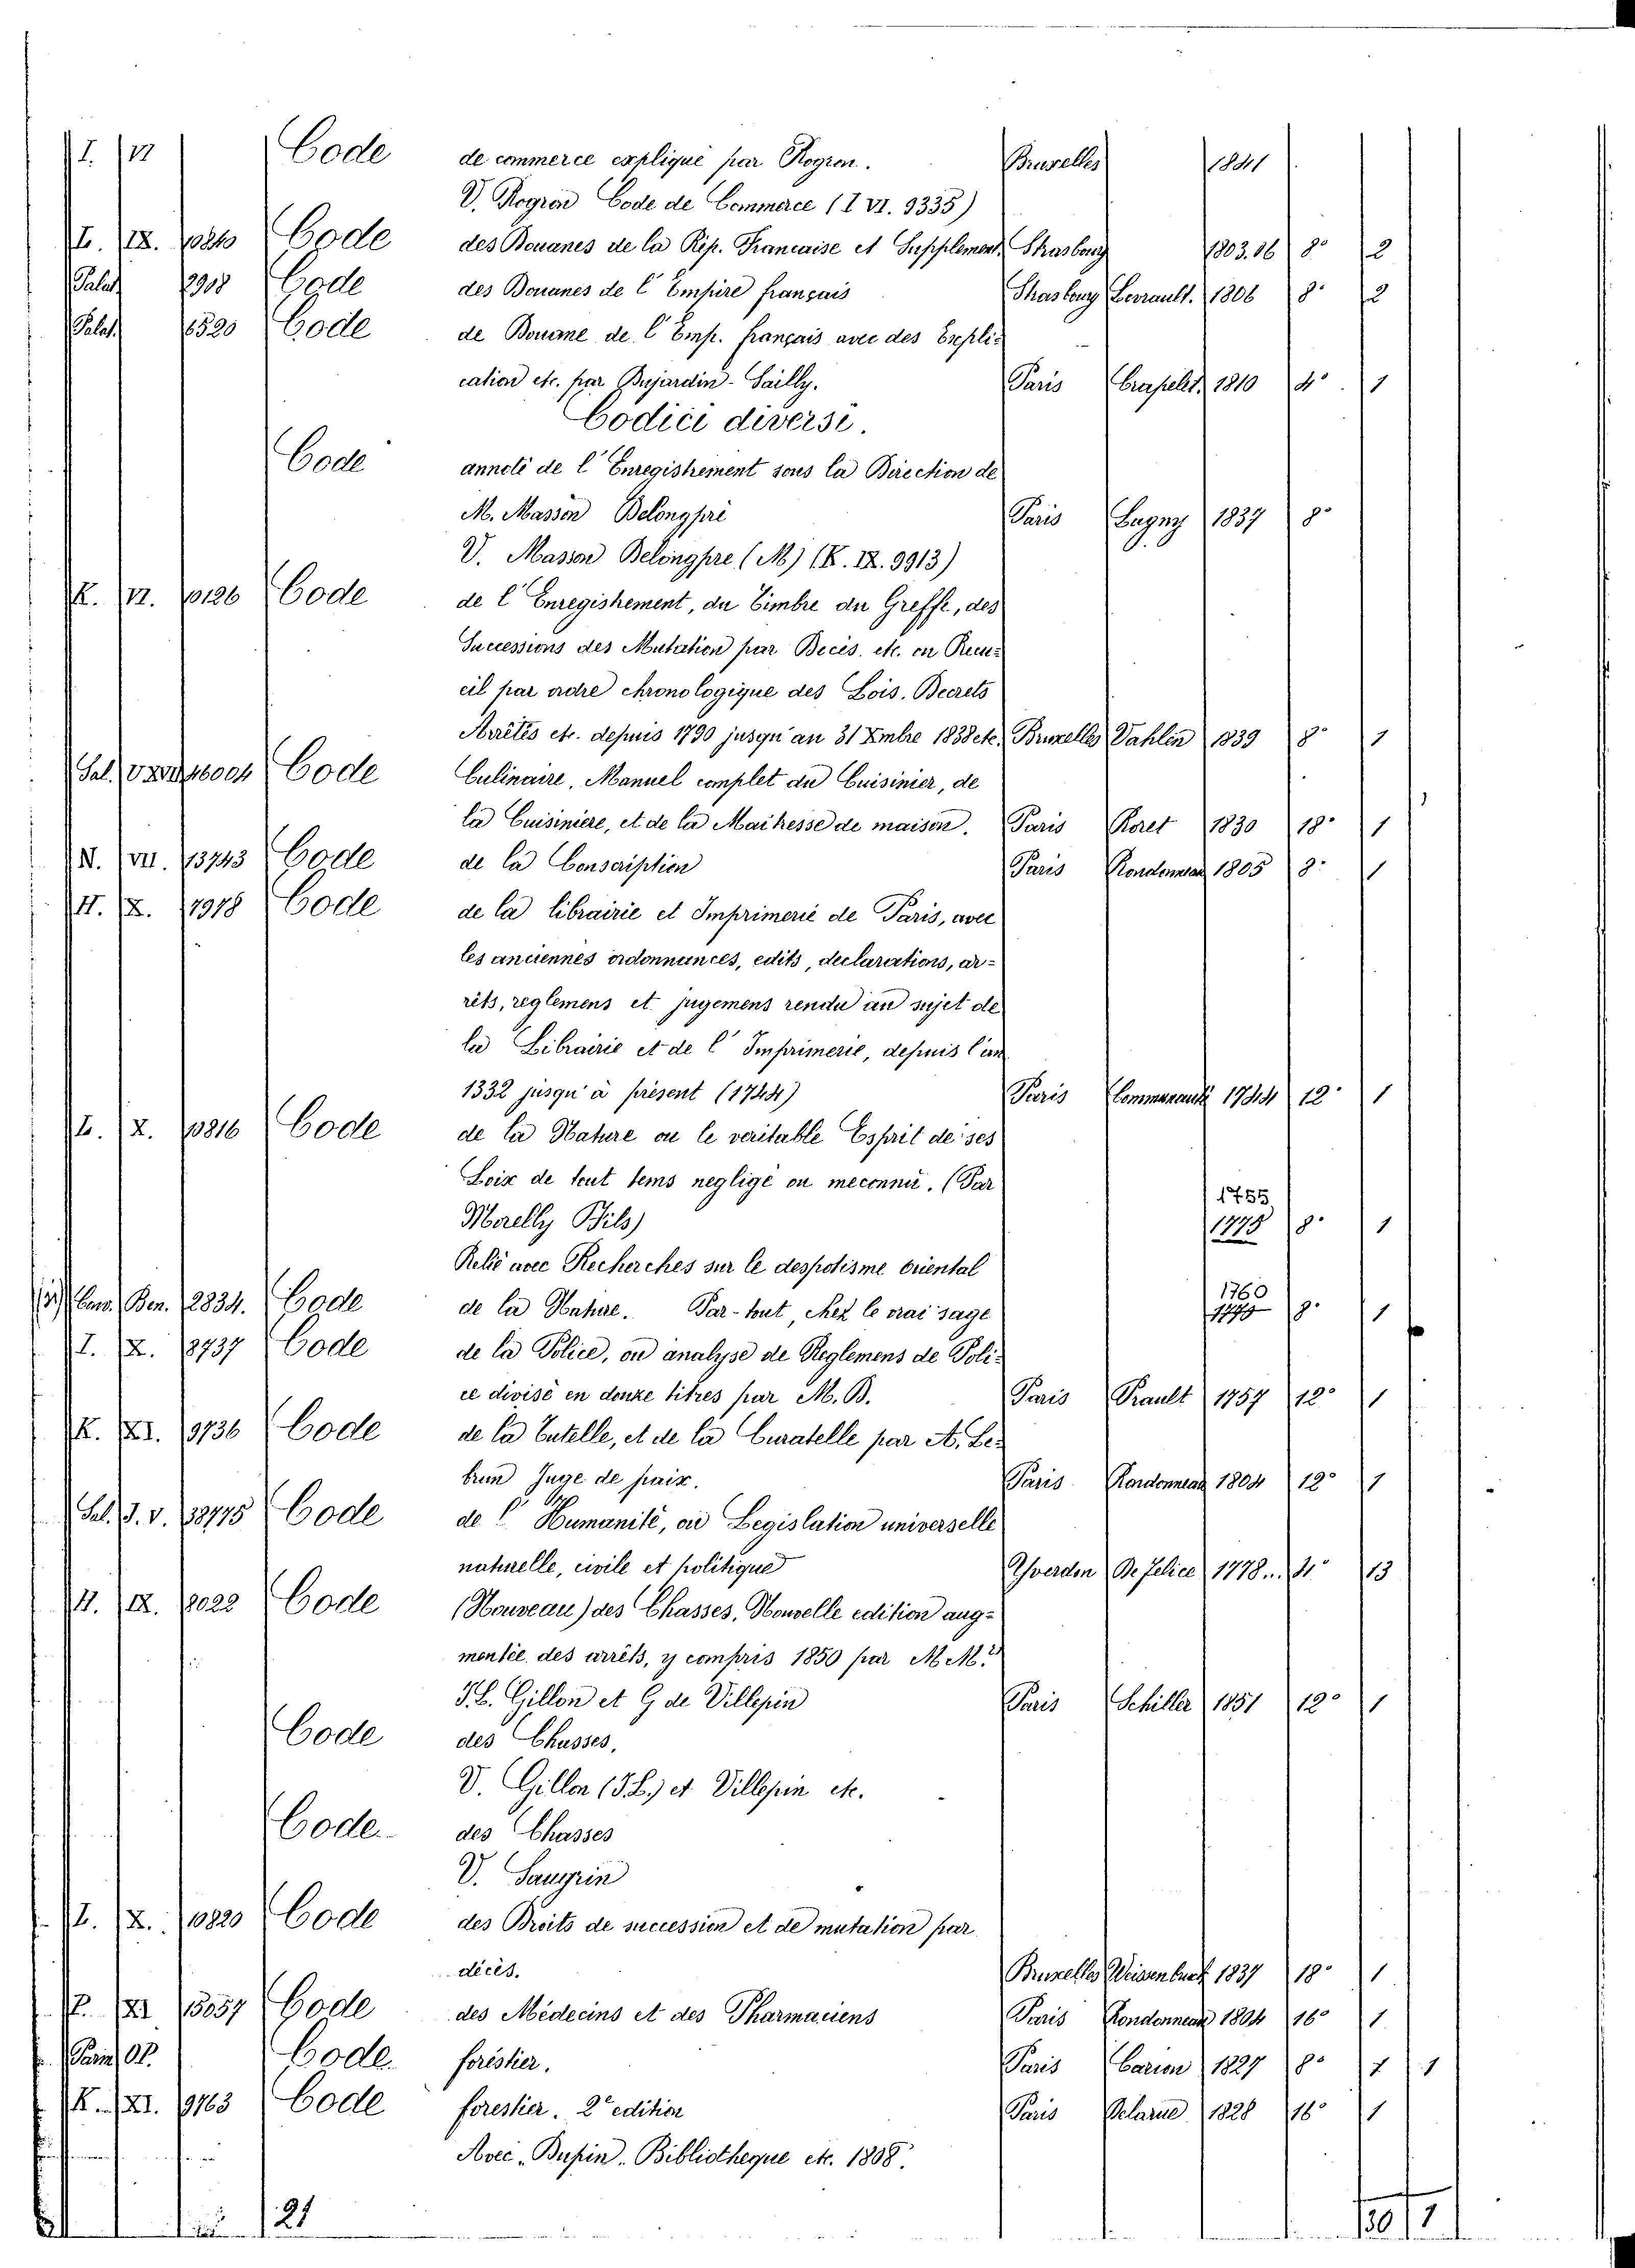 I. VI Code de commerce expliqué par Rogron. Bruxelles 1841
V. Rogron Code de Commerce (I VI. 9335)
L. IX. 10240 Code des Douanes de la Rép. Française et Supplement, Strasbourg 1803.06 8° 2
Palat. 2908 Code des Douanes de l'Empire français Strasbourg Levrault. 1806 8° 2
Palat. 6520 Code de Douane de l'Emp. français avec des Expli-
cation etc. par Dujardin-Sailly. Paris Crapelet 1810 4° 1
Codici diversi.
Code annoté de l'Enregistrement sous la Direction de
M. Masson Delongpré Paris Lagny 1837 8°
V. Masson Delongpre (M) (K. IX. 9913)
K. VI. 10126 Code de l'Enregistrement, du Timbre du Greffe, des
Successions des Mutation par Décès. etc. on Recu-
eil par ordre chronologique des Lois. Decrets
Arrêtés etc. depuis 1790 jusqu'au 31 Xmbre 1838 etc. Bruxelles Vahlen 1839 8° 1
Sal. 46004 Code Culinaire, Manuel complet du Cuisinier, de
la Cuisiniere, et de la Maitresse de maison. Paris Roret 1830 18° 1
N. VII. 13743 Code de la Conscription Paris Rondonneau 1805 8° 1
H. X. 7978 Code de la librairie et Imprimerie de Paris, avec
les anciennes ordonnances, edits, declarations, ar-
rêts, reglemens et jugemens rendu au sujet de
la Librairie et de l'Imprimerie, depuis l'an
1332 jusqu'à présent (1744) Paris Communauté 1744 12° 1
L. X. 10816 Code de la Nature ou le veritable Esprit de ses
Loix de tout tems negligé ou meconnu. (Par 1755
Morelly Fils) 1778 8° 1
Relié avec Recherches sur le despotisme oriental 1760
Ben. 2834. Code de la Nature. Par-tout, chez le vrai sage 8° 1
I. X. 8737 Code de la Police, ou analyse de Reglemens de Poli-
ce divisé en douze titres par M. D. Paris Prault 1757 12° 1
K. XI. 9736 Code de la Tutelle, et de la Curatelle par A. Le-
brun Juge de paix. Paris Rondonneau 1804 12° 1
Sal. J. V. 38775 Code de l'Humanité, ou Legislation universelle
naturelle, civile et politique Yverdon De Felice 1778.. 4° 13
H. IX. 8022 Code (Nouveau) des Chasses, Nouvelle edition aug-
mentée des arrêts, y compris 1850 par MM.rs
J.L. Gillon et G de Villepin Paris Schiller 1851 12° 1
Code des Chasses.
V. Gillon (J.L.) et Villepin etc.
Code des Chasses
V. Saugrin
L. X. 10820 Code des Droits de succession et de mutation par
décès. Bruxelles Weissenbruch 1837 18° 1
P. XI 15057 Code des Médecins et des Pharmaciens Paris Rondonneau 1804 16° 1
Code forestier. Paris Carion 1827 8° 1 1
K. XI. 9763 Code forestier. 2e edition Paris Delarue 1828 16° 1
Avec. Dupin. Bibliotheque etc. 1808.
21 30 1